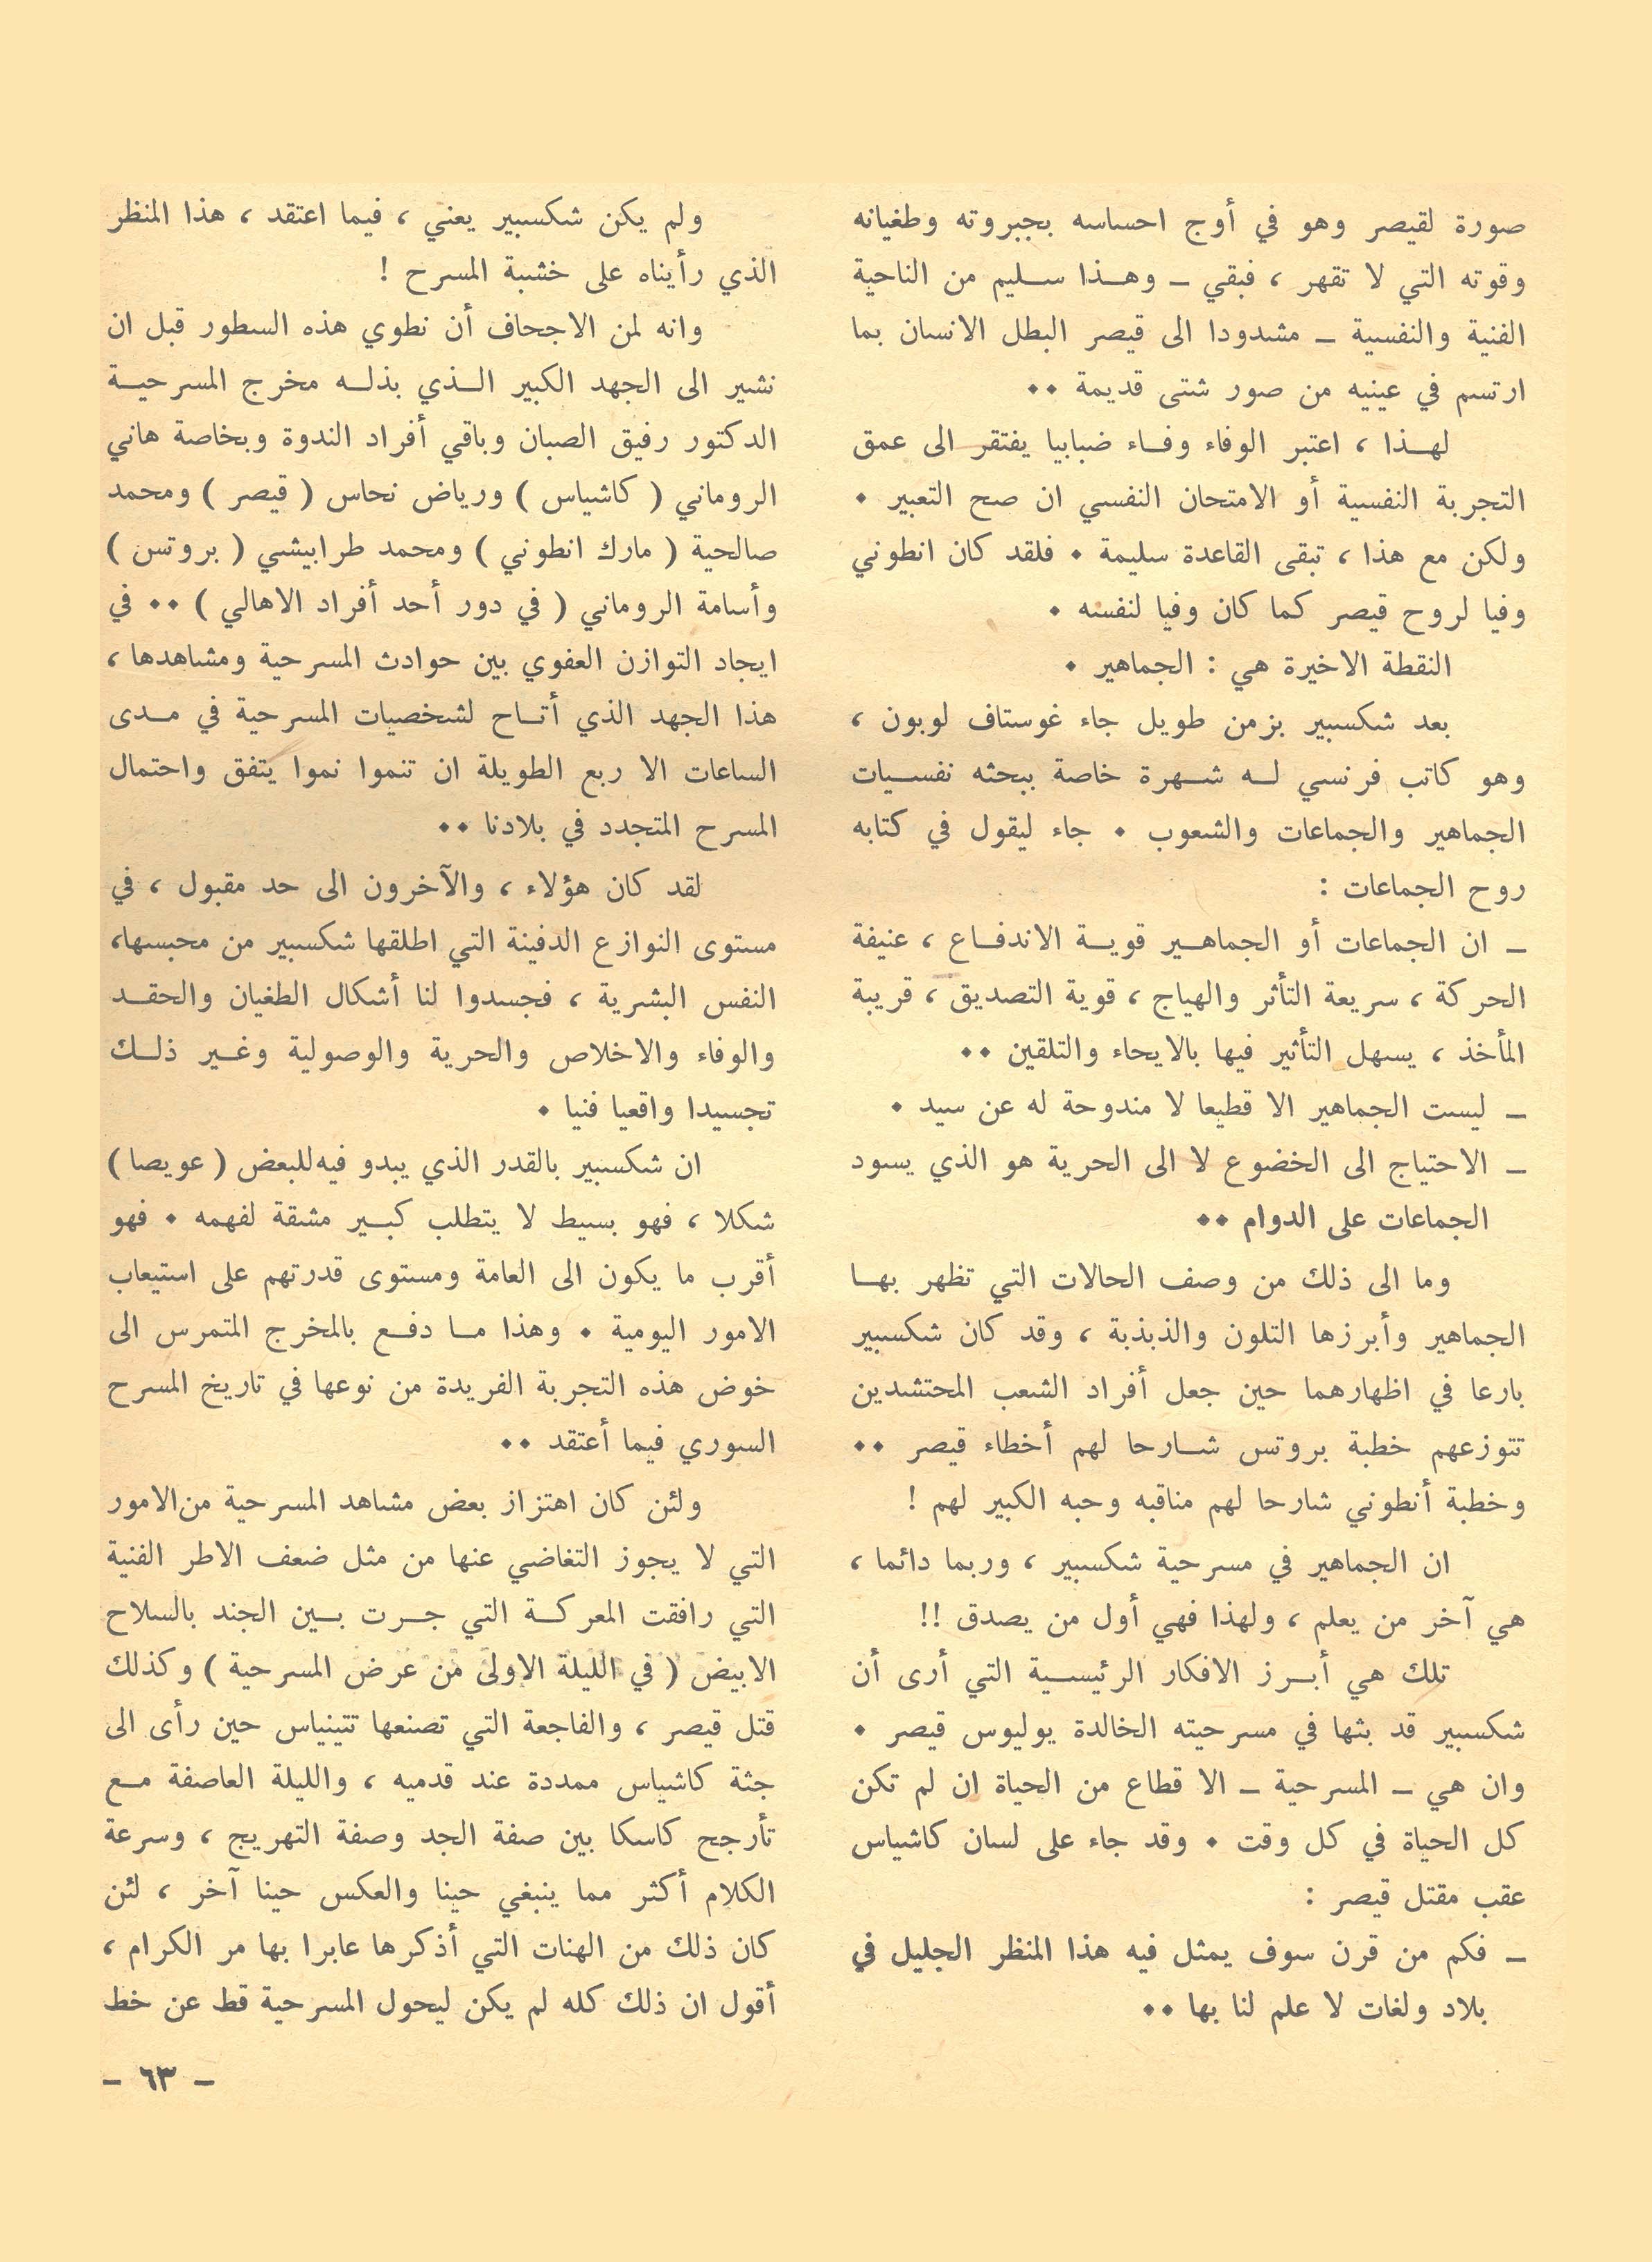 صورة لقيصر وهو في أوج احساسه بجبروته وطغيانه
وقوته التي لا تقهر ، فبقي ــ وهــذا ســليم من الناحية
الفنية والنفسية ــ مشدودا الى قيصر البطل الانسان بما
ارتسم في عينيه من صور شتى قديمة ٠٠
لهــذا ، اعتبر الوفاء وفــاء ضبابيا يفتقر الى عمق
التجربة النفسية أو الامتحان النفسي ان صح التعبير ٠
ولكن مع هذا ، تبقى القاعدة سليمة ٠ فلقد كان انطوني
وفيا لروح قيصر كما كان وفيا لنفسه ٠
النقطة الاخيرة هي : الجماهير ٠
بعد شكسبير بزمن طويل جاء غوستاف لوبون ،
وهو كاتب فرنسي لــه شــهرة خاصة ببحثه نفســيات
الجماهير والجماعات والشعوب ٠ جاء ليقول في كتابه
روح الجماعات :
ــ ان الجماعات أو الجماهــير قويــة الاندفــاع ، عنيفة
الحركة ، سريعة التأثر والهياج ، قوية التصديق ، قريبة
المأخذ ، يسهل التأثير فيها بالايحاء والتلقين ٠٠
ــ ليست الجماهير الا قطيعا لا مندوحة له عن سيد ٠
ــ الاحتياج الى الخضوع لا الى الحرية هو الذي يسود
الجماعات على الدوام ٠٠
وما الى ذلك من وصف الحالات التي تظهر بهــا
الجماهير وأبرزها التلون والذبذبة ، وقد كان شكسبير
بارعا في اظهارهما حين جعل أفراد الشعب المحتشدين
تتوزعهم خطبة بروتس شــارحا لهم أخطاء قيصر ٠٠
وخطبة أنطوني شارحا لهم مناقبه وحبه الكبير لهم !
ان الجماهير في مسرحية شكسبير ، وربما دائما ،
هي آخر من يعلم ، ولهذا فهي أول من يصدق !!
تلك هي أبــرز الافكار الرئيســية التي أرى أن
شكسبير قد بثها في مسرحيته الخالدة يوليوس قيصر ٠
وان هي ــ المسرحية ــ الا قطاع من الحياة ان لم تكن
كل الحياة في كل وقت ٠ وقد جاء على لسان كاشياس
عقب مقتل قيصر :
ــ فكم من قرن سوف يمثل فيه هذا المنظر الجليل في
بلاد ولغات لا علم لنا بها ٠٠
ولم يكن شكسبير يعني ، فيما اعتقد ، هذا المنظر
الذي رأيناه على خشبة المسرح !
وانه لمن الاجحاف أن نطوي هذه السطور قبل ان
نشير الى الجهد الكبير الــذي بذلــه مخرج المسرحيــة
الدكتور رفيق الصبان وباقي أفراد الندوة وبخاصة هاني
الروماني ( كاشياس ) ورياض نحاس ( قيصر ) ومحمد
صالحية ( مارك انطوني ) ومحمد طرابيشي ( بروتس )
وأسامة الروماني ( في دور أحد أفراد الاهالي ) ٠٠ في
ايجاد التوازن العفوي بين حوادث المسرحية ومشاهدها ،
هذا الجهد الذي أتــاح لشخصيات المسرحية في مــدى
الساعات الا ربع الطويلة ان تنموا نموا يتفق واحتمال
المسرح المتجدد في بلادنا ٠٠
لقد كان هؤلاء ، والآخرون الى حد مقبول ، في
مستوى النوازع الدفينة التي اطلقها شكسبير من محبسها،
النفس البشرية ، فجسدوا لنا أشكال الطغيان والحقــد
والوفاء والاخلاص والحرية والوصولية وغــير ذلــك
تجسيدا واقعيا فنيا ٠
ان شكسبير بالقدر الذي يبدو فيه للبعض ( عويصا )
شكلا ، فهو بسيط لا يتطلب كبــير مشقة لفهمه ٠ فهو
أقرب ما يكون الى العامة ومستوى قدرتهم على استيعاب
الامور اليومية ٠ وهذا مــا دفــع بالمخرج المتمرس الى
خوض هذه التجربة الفريدة من نوعها في تاريخ المسرح
السوري فيما أعتقد ٠٠
ولئن كان اهتزاز بعض مشاهد المسرحية من الامور
التي لا يجوز التغاضي عنها من مثل ضعف الاطر الفنية
التي رافقت المعركــة التي جــرت بــين الجند بالسلاح
الابيض ( في الليلة الاولى من عرض المسرحية ) وكذلك
قتل قيصر ، والفاجعة التي تصنعها تتينياس حين رأى الى
جثة كاشياس ممددة عند قدميه ، والليلة العاصفة مــع
تأرجح كاسكا بين صفة الجد وصفة التهريج ، وسرعة
الكلام أكثر مما ينبغي حينا والعكس حينا آخر ، لئن
كان ذلك من الهنات التي أذكرها عابرا بها مر الكرام ،
أقول ان ذلك كله لم يكن ليحول المسرحية قط عن خط
ــ ٦٣ ــ